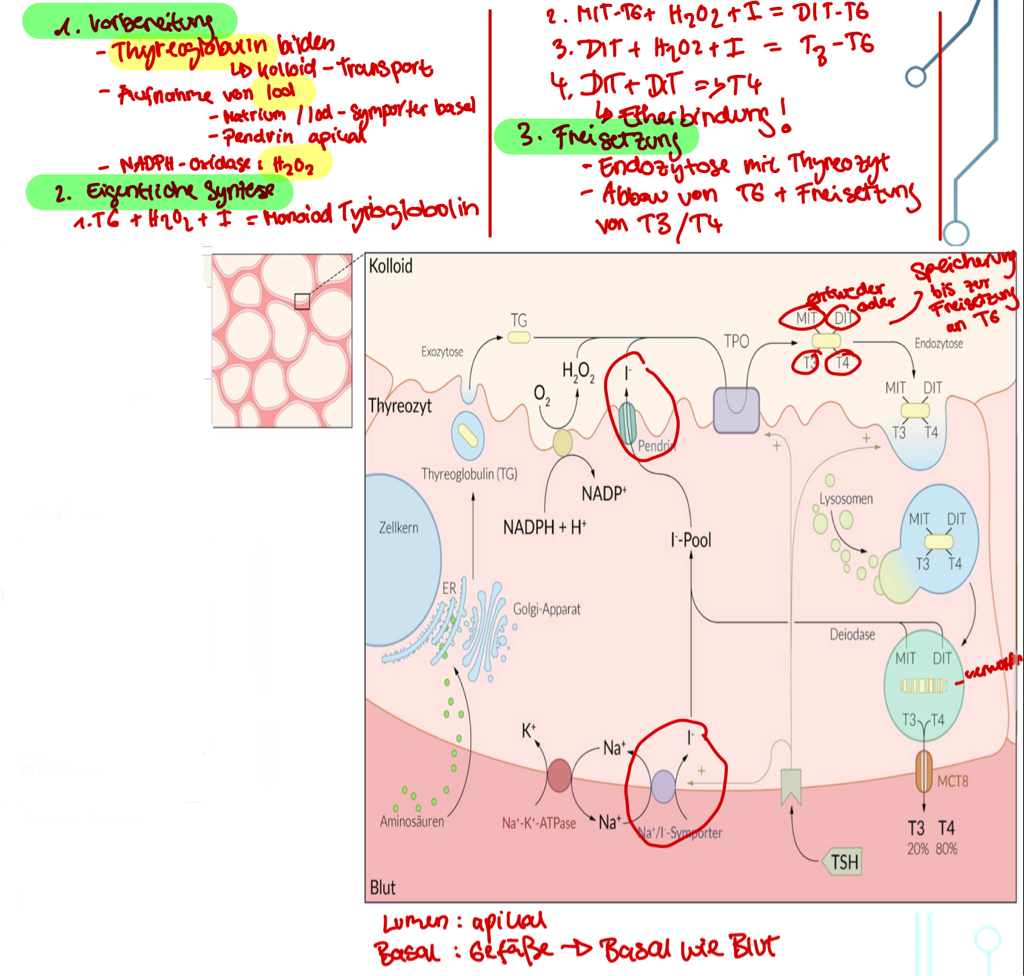 1. Vorbereitung
- Thyreoglobulin bilden
↳ Kolloid-Transport
- Aufnahme von Iod
- Natrium/Iod-Symporter basal
- Pendrin apikal
- NADPH-Oxidase: H2O2
2. Eigentliche Syntese
1. TG + H2O2 + I = Monoiod Tyroglobolin
2. MIT-TG + H2O2 + I = DIT-TG
3. DIT + H2O2 + I = T3-TG
4. DIT + DIT => T4
↳ Etherbindung!
3. Freisetzung
- Endozytose mit Thyreozyt
- Abbau von TG + Freisetzung
von T3/T4
Kolloid
Speicherung
bis zur
Freisetzung
an TG
entweder
oder
MIT DIT
T3 T4
TG
TPO
Exozytose
Endozytose
H₂O₂
I⁻
O₂
MIT DIT
T3 T4
Thyreozyt
Pendrin
+
+
Thyreoglobulin (TG)
NADP⁺
Lysosomen
Zellkern
NADPH + H⁺
MIT DIT
T3 T4
I⁻-Pool
ER
Golgi-Apparat
Deiodase
MIT DIT
T3 T4
K⁺
Na⁺
I⁻
+
MCT8
Aminosäuren
Na⁺-K⁺-ATPase
Na⁺
Na⁺/I⁻-Symporter
T3 T4
20% 80%
TSH
Blut
Lumen: apikal
Basal: Gefäße → Basal wie Blut